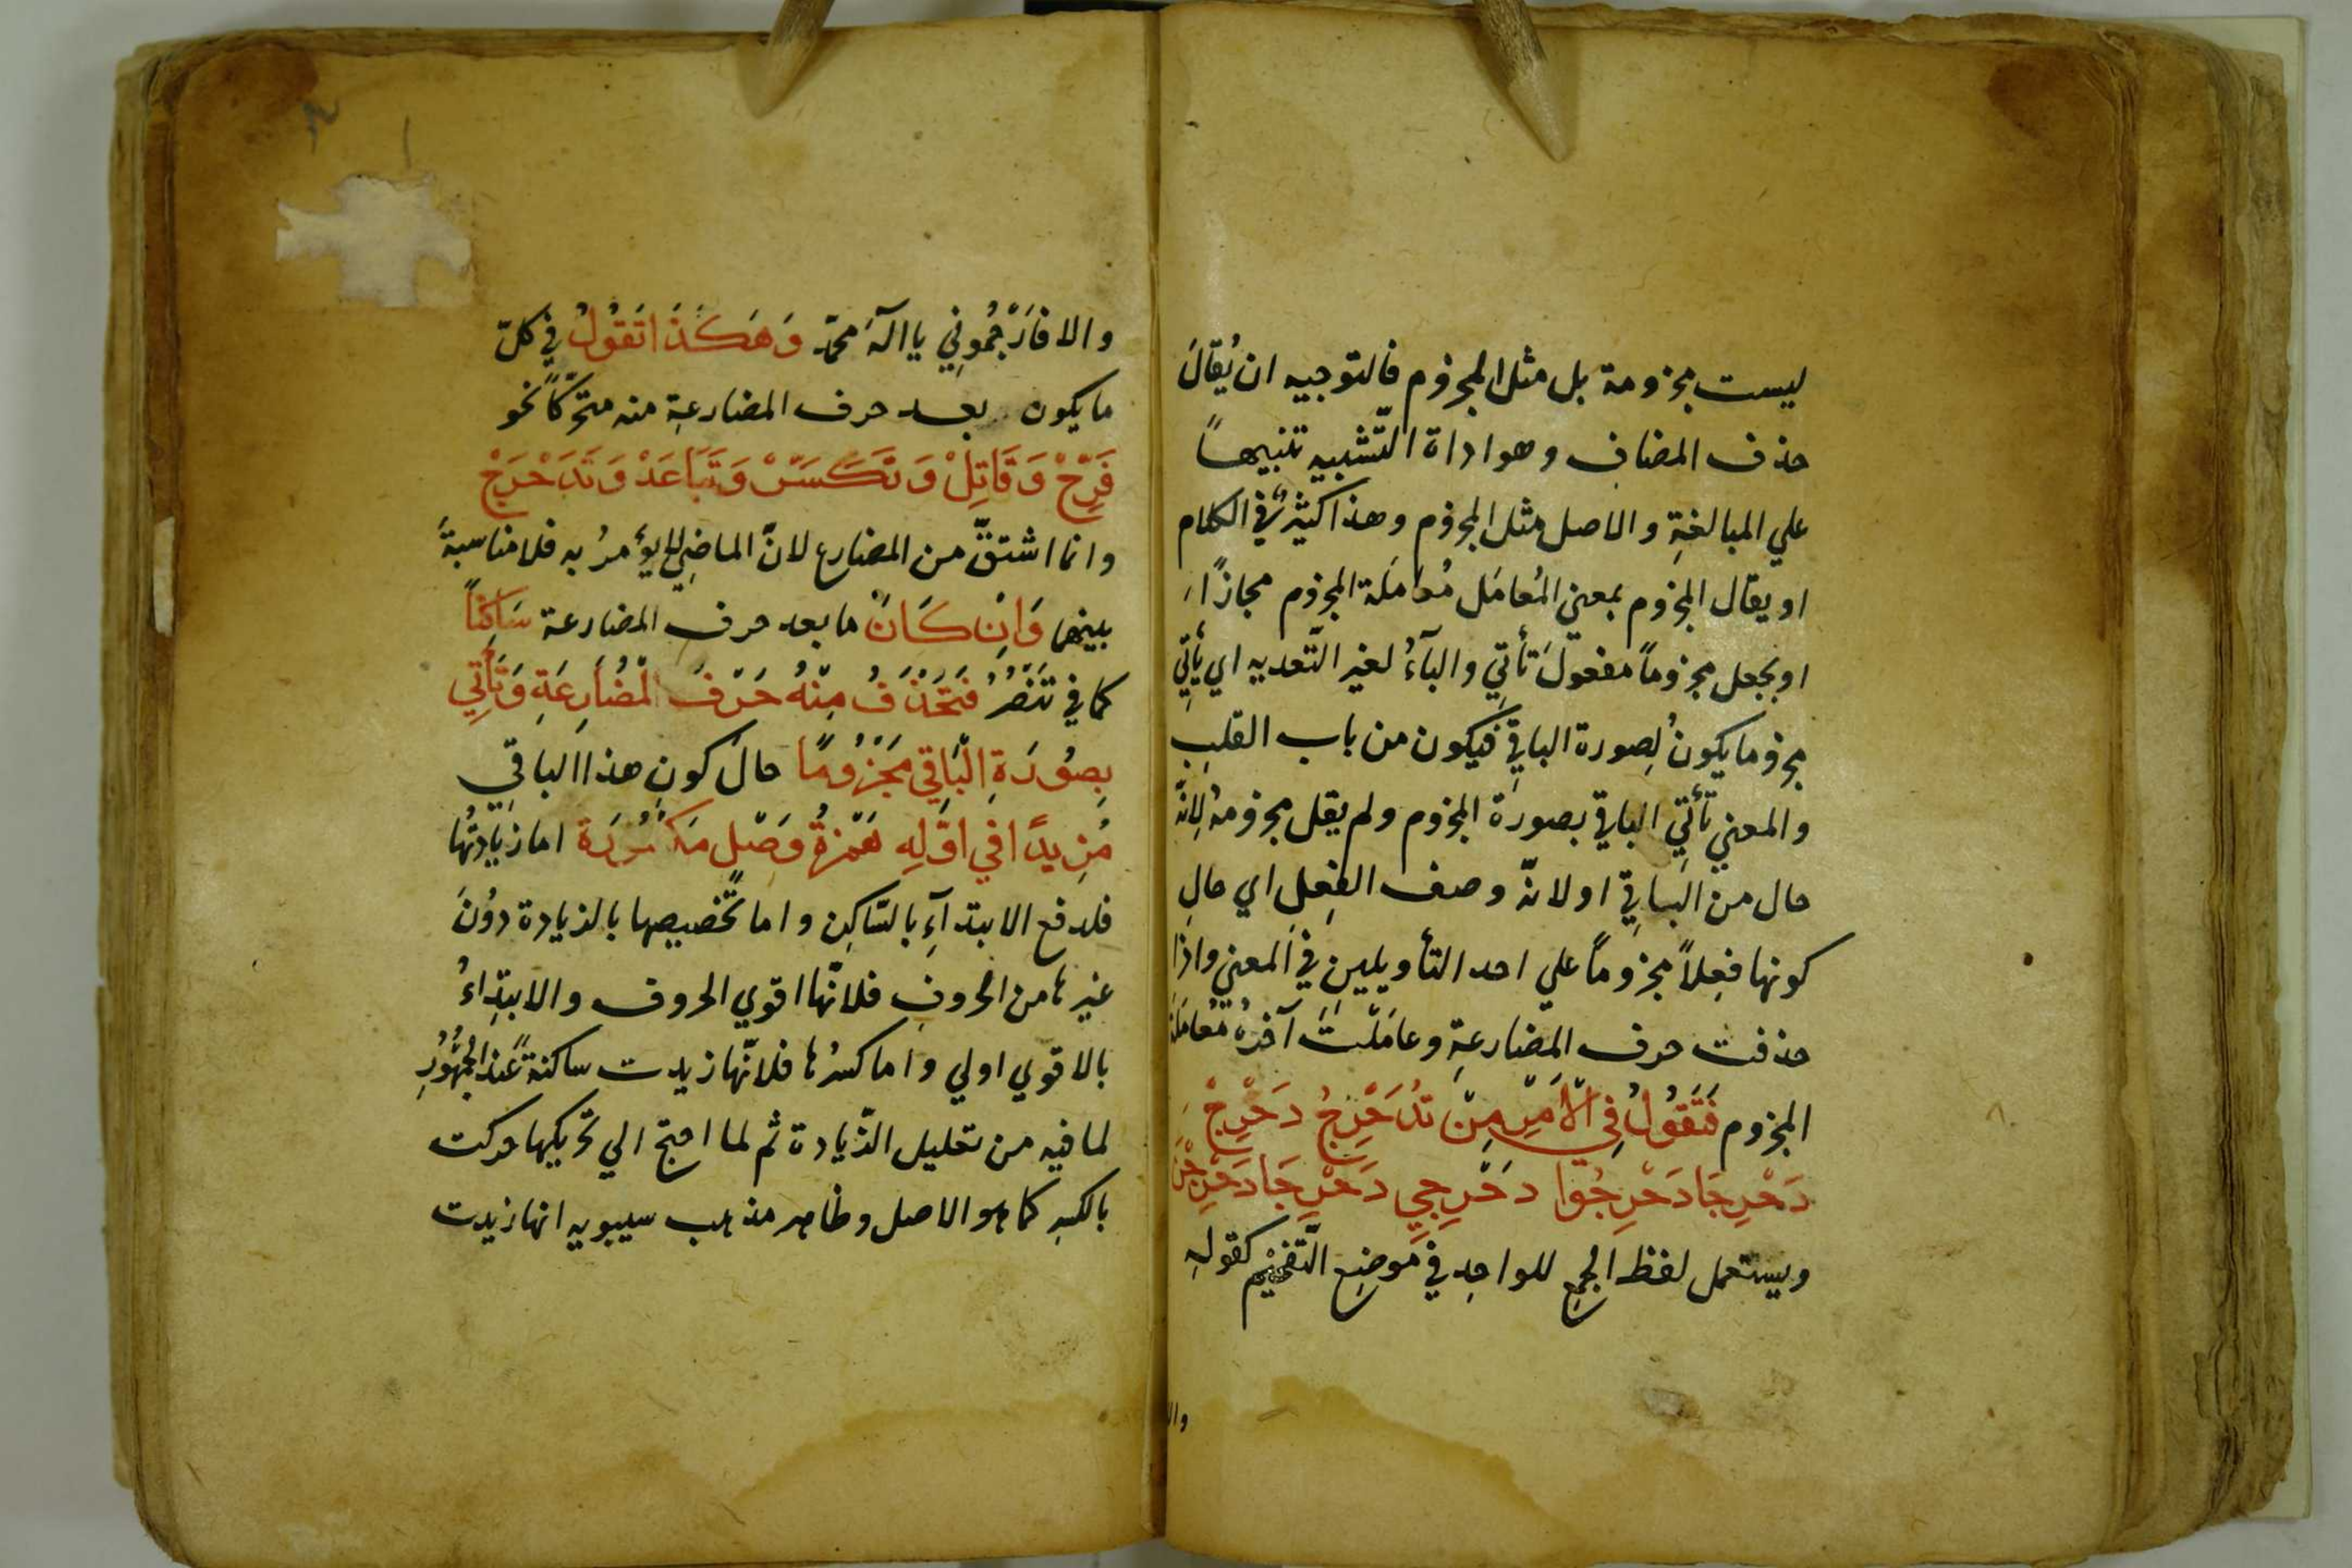 ليست مجزومة بل مثل المجزوم فالتوجيه ان يُقالَ
حذف المضاف وهو اداة التّشبيه تنبيهاً
علي المبالغةِ والاصل مثل المجزوم وهذا كثيرٌ في الكلام
او يقال المجزوم بمعني المُعامَل مُعامَلة المجزوم مجازًا
او يجعل مجزوماً مفعولَ تأتِي والبآءُ لغير التّعديه اي يأتِي
مجزوما يكونُ لِصورة الباقِي فيكون من باب القلبِ
والمعني تأتِي الباقي بصورة المجزوم ولم يقل مجزومةً لِانّه
حال من الباقِي اولانّه وصف الفِعلِ اي حالِ
كونها فعِلاً مجزوماً علي احد التأويلين في المعني واذا
حذفت حرف المضارعةِ وعامَلْتَ آخرهُ مُعامَلَة
المجزوم فَتَقُولُ فِي الْاَمْرِ مِنْ تُدَحْرِجُ دَحْرِجْ
دَحْرِجَا دَحْرِجُوا دَحْرِجِي دَحْرِجَا دَحْرِجْنَ
ويستعمل لفظ الجمعِ للواحِد في موضِع التّفخيم كقولهِ
وال
والا فَارْجُمُونِي يا الٓهَ محمّد وَهَكَذَا تَقُولُ في كلّ
ما يكون بعد حرف المضارعةِ منه متحرّكاً نحو
فَرِّحْ وَقَاتِلْ وَتَكَسَّرْ وَتَبَاعَدْ وَتَدَحْرَجْ
وانما اشتقّ من المضارع لانّ الماضِي لا يؤمرُ به فلا مناسبةَ
بينهما وَاِنْ كَانَ ما بعد حرفِ المضارعة سَاكِنًا
كما في تَنْصُرُ فَتَحْذِفُ مِنْهُ حَرْفَ الْمُضَارِعَةِ وَتَأْتِي
بِصُورَةِ الْبَاقِي مَجْزُومًا حالَ كونِ هذا الباقِي
مَزِيدًا فِي اَوَّلِهِ هَمْزَةُ وَصْلٍ مَكْسُورَة اما زيادتُها
فلدفع الابتدآءِ بالسّاكِن واما تخصيصها بالزيادة دوُنَ
غيرها من الحروفِ فلانّها اقوي الحروف والابتِداءُ
بالاقوي اولي واما كسرُها فلانّها زيدت ساكنةً عند الجمهُورِ
لما فيه من تقليل الزّيادة ثم لما احتج الي تحريكها حركت
بالكسرِ كما هو الاصل وظاهر مذهب سيبويه انها زيدت